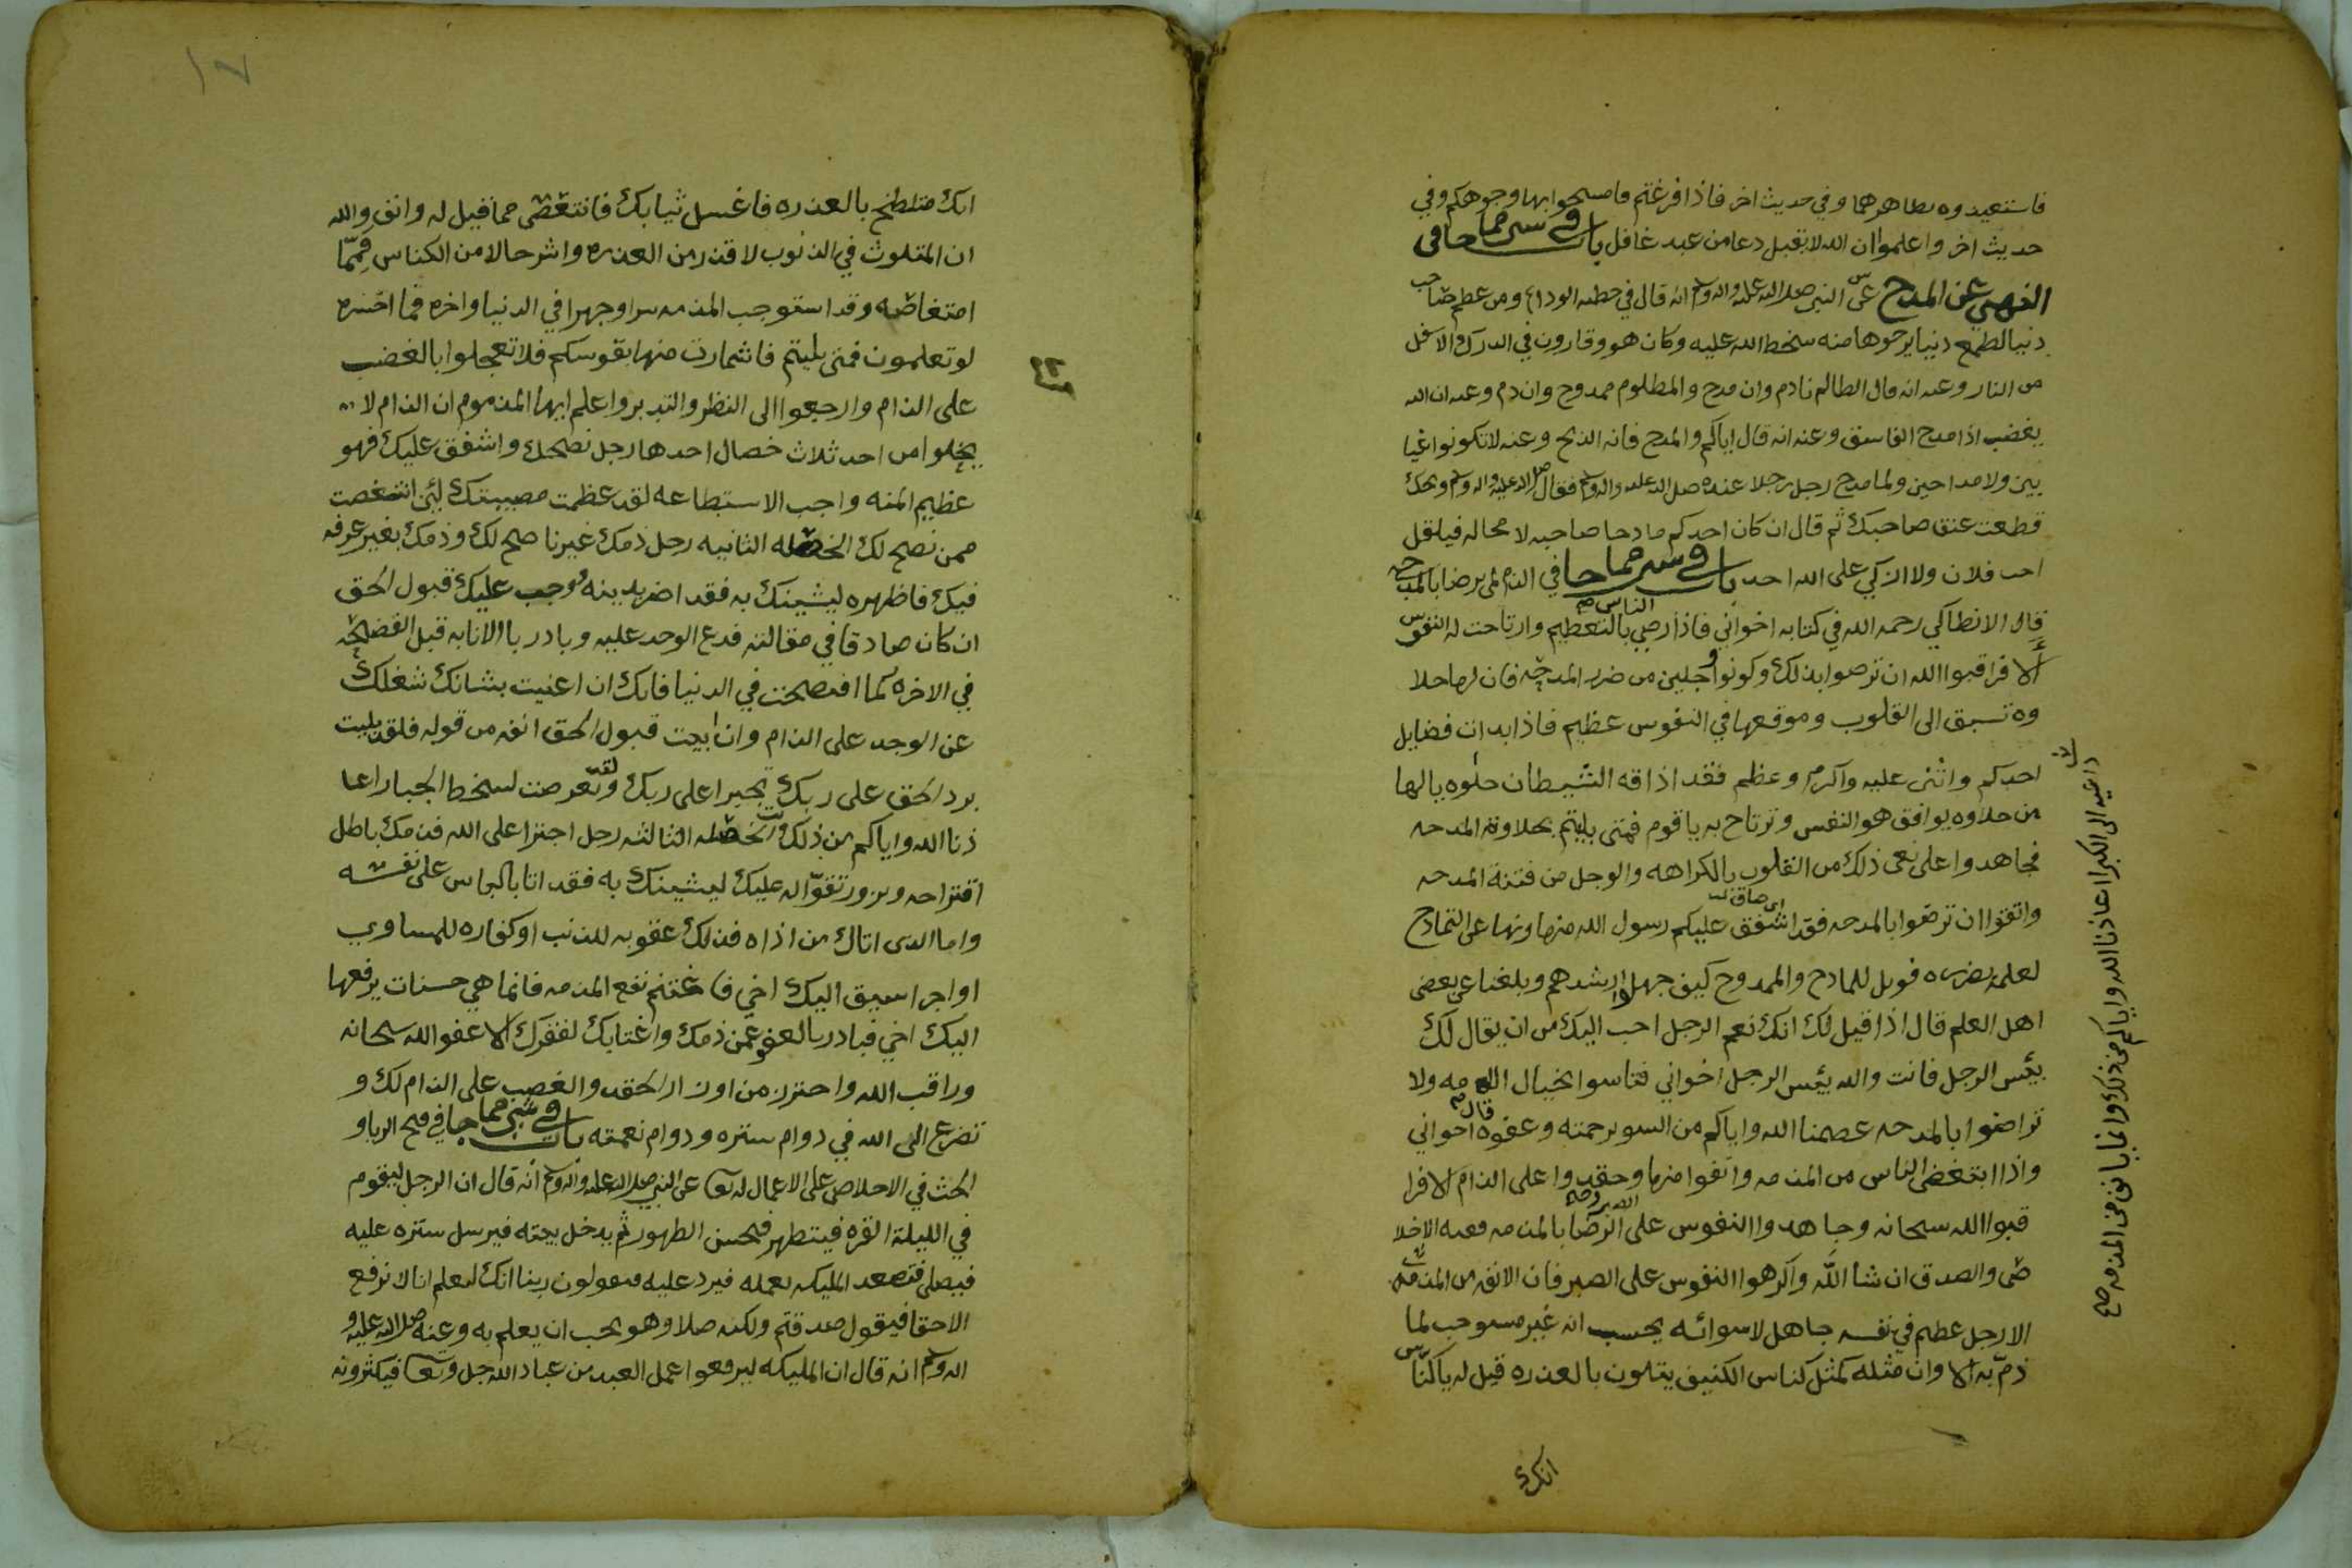 فاستعيدوه بظاهرهما وفي حديث اخر فاذا فرغتم فامسحوا بها وجوهكم وفي
حديث اخر واعلموا ان الله لا يقبل دعا من عبد غافل باب
النهي عن المدح عن النبي صلى الله عليه واله وسلم انه قال في خطبه الوداع ومن عظم صاحب
دنيا لطمع دنيا يرجوها منه سخط الله عليه وكان هو وقارون في الدرك الاسفل
من النار وعنه انه قال الظالم نادم وان مدح والمظلوم ممدوح وان ذم وعنه ان الله
يغضب اذا مدح الفاسق وعنه انه قال اياكم والمدح فانه الذبح وعنه لا تكونوا عيا
بين ولا مداحين ولما مدح رجل رجلا عنده صلى الله عليه واله وسلم فقال صلى الله عليه واله وسلم ويحك
قطعت عنق صاحبك ثم قال ان كان احدكم مادحا صاحبه لا محاله فليقل
احب فلان ولا ازكي على الله احد باب في الذم لمن يرضا بالمدحه
قال الانطاكي رحمه الله في كتابه اخواني فاذا رضي الناس بالتعظيم وارتاحت له النفوس
الا فراقبوا الله ان ترضوا بذلك وكونوا وجلين من ضرر المدحه فان لها حلا
وه تسبق الى القلوب وموقعها في النفوس عظيم فاذا بدات فضايل
احدكم واثنى عليه واكرم وعظم فقد اذاقه الشيطان حلوه يا لها
من حلاوه يوافق هو النفس وترتاح به يا قوم فمتى بليتم بحلاوة المدحه
فجاهدوا على نفي ذلك من القلوب بالكراهه والوجل من فتنة المدحه
واتقوا ان ترضوا بالمدحه فقد اشفق عليكم رسول الله منها ونها عن التمادح
لعلمه بضرره فويل للمادح والممدوح كيف جهلوا رشدهم وبلغنا عن بعض
اهل العلم قال اذا قيل لك انك نعم الرجل احب اليك من ان يقال لك
بئس الرجل فانت والله بئس الرجل اخواني فتاسوا بخيال ولا
تراضوا بالمدحه عصمنا الله واياكم من السو برحمته وعفوه قال اخواني
واذا ابتغض الناس من المذمه وانفوا منها وحقدوا على الذام الا فرا
قبوا الله سبحانه وجاهدوا النفوس على الرضا بالمذمه فعند الاخلا
ص والصدق ان شا الله واكرهوا النفوس على الصبر فان الانفه من المذمه
داعيه الى الكبر اعاذنا الله واياكم من ذلك وانما يانف من المذمه صح
الا رجل عظيم في نفسه جاهل لاسوائه يحسب انه غير مستوجب لما
ذم به الا وان مثله كمثل كناس الكنيف يتلوث بالعذره قيل له يا كناس
انك
١٧
انك متلطخ بالعذره فاغسل ثيابك فانتغض مما قيل له وانف والله
ان المتلوث في الذنوب لاقذر من العذره واشر حالا من الكناس فمما
امتغاضه وقد استوجب المذمه سرا وجهرا في الدنيا واخره فما اخسره
لو تعلمون فمتى بليتم فاشمازت منها نفوسكم فلا تعجلوا بالغضب
على الذام وارجعوا الى النظر والتدبر واعلم ايها المذموم ان الذام لا
يخلوا من احد ثلاث خصال احدها رجل نصحك واشفق عليك فهو
عظيم المنه واجب الاستطاعه لقد عظمت مصيبتك لئن انتغضت
ممن نصح لك الخصله الثانيه رجل ذمك غير ناصح لك وذمك بغير عرفه
فيك فاظهره ليشينك به فقد اضر بدينه ووجب عليك قبول الحق
ان كان صادقا في مقالته فدع الوجد عليه وبادر بالانابه قبل الفضيحه
في الاخره كما افتضحت في الدنيا فانك ان اعنيت بشانك شغلك
عن الوجد على الذام وان ابيت قبول الحق انفه من قوله فلقد بليت
برد الحق على ربك تجبرا على ربك ولقد تعرضت لسخط الجبار اعا
ذنا الله واياكم من ذلك الخصله الثالثه رجل اجترا على الله فذمك باطل
افتراحه وبزور تقوله عليك ليشينك به فقد اتا بالباس على نفسه
واما الذي اتاك من اذاه فذلك عقوبه للذنب او كفاره للمساوي
او اجرا سبق اليك اخي فاغتنم نفع المذمه فانما هي حسنات يرفعها
اليك اخي فبادر بالعفو عمن ذمك واغتابك لفقرك الا عفو الله سبحانه
وراقب الله واحترز من اوزار الحقد والغضب على الذام لك و
تضرع الى الله في دوام ستره ودوام نعمته باب في قبح الريا و
الحث في الاخلاص على الاعمال له تعا عن النبي صلى الله عليه واله وسلم انه قال ان الرجل ليقوم
في الليلة القره فيتطهر فيحسن الطهور ثم يدخل بيته فيرسل ستره عليه
فيصلي فتصعد المليكه بعمله فيرد عليه فيقولون ربنا انك لتعلم انا لا نرفع
الا حقا فيقول صدقتم ولكنه صلا وهو يحب ان يعلم به وعنه صلى الله عليه و
اله وسلم انه قال ان المليكه ليرفعوا عمل العبد من عباد الله جل وتعا فيكثرونه